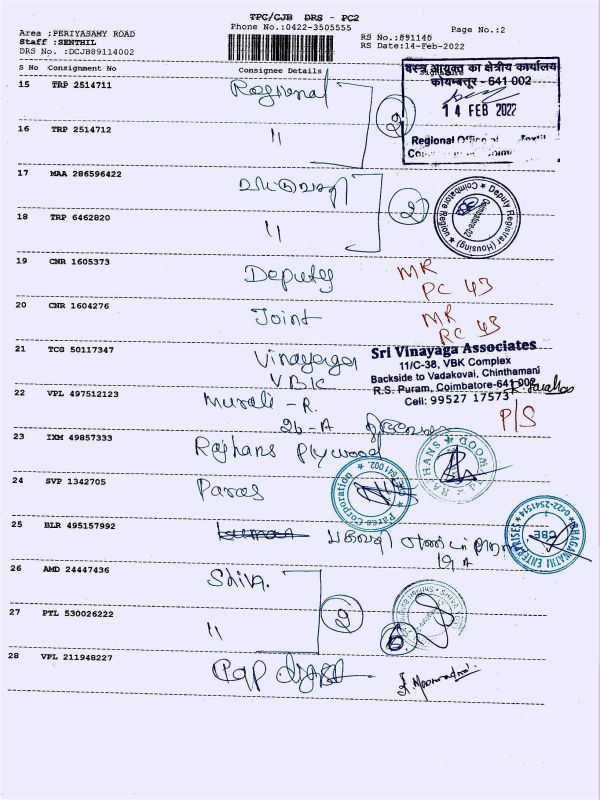 TPC/CJB DRS - PC2
Phone No.:0422-3505555
Page No.:2
Area :PERIYASAMY ROAD
Staff :SENTHIL
DRS No. :DCJB89114002
RS No.:891140
RS Date:14-Feb-2022
S No Consignment No Consignee Details Signature
वस्त्र आयुक्त का क्षेत्रीय कार्यालय
कोयम्बत्तूर - 641 002
14 FEB 2022
Regional Office of Textil
15 TRP 2514711 Regional
2
16 TRP 2514712 "
17 MAA 286596422
2
Deputy Registrar (Housing)
Coimbatore Region
Coimbatore-02
18 TRP 6462820 "
19 CNR 1605373 Deputy MR
PC 43
20 CNR 1604276 Joint MR
RC 43
21 TCG 50117347 Vinayaga
VBK
Sri Vinayaga Associates
11/C-38, VBK Complex
Backside to Vadakovai, Chinthamani
R.S. Puram, Coimbatore-641 002
Cell: 99527 17573
22 VPL 497512123 Murali - R.
26-A
P/S
23 IXM 49857333 Rajhans Plywood
RAJHANS PLYWOOD
24 SVP 1342705 Paras
Paras Corporation
641 002.
25 BLR 495157992
19 A
BHAGAWATHI ENTERPRISES
0422-2541514
CBE
26 AMD 24447436 Shiva.
2
27 PTL 530026222 "
28 VPL 211948227